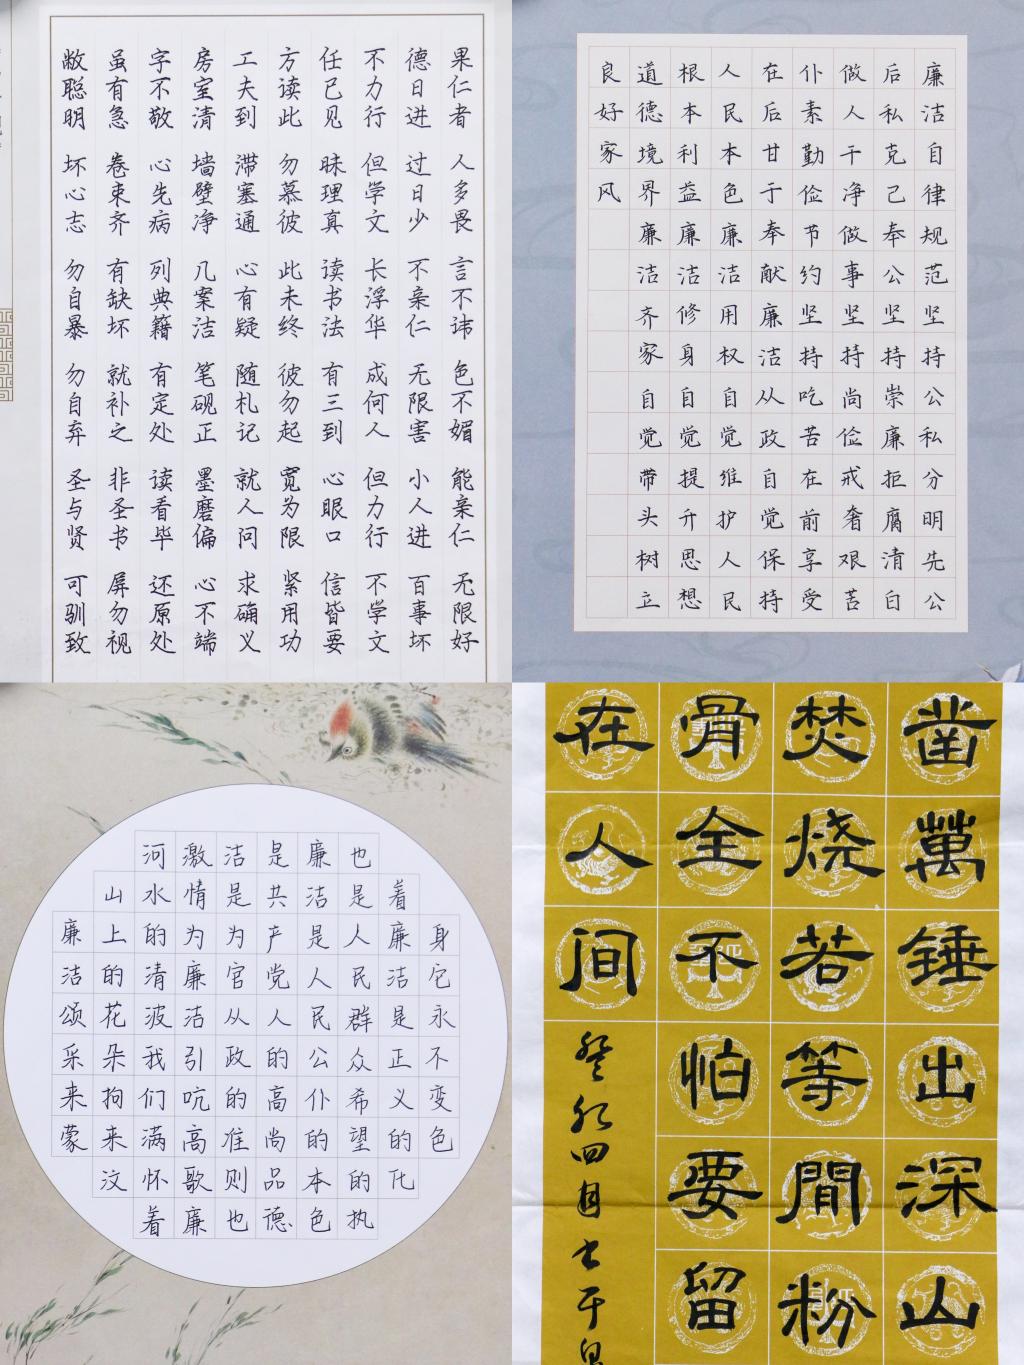 果仁者 人多畏 言不讳 色不媚 能亲仁 无限好
德日进 过日少 不亲仁 无限害 小人进 百事坏
不力行 但学文 长浮华 成何人 但力行 不学文
任己见 昧理真 读书法 有三到 心眼口 信皆要
方读此 勿慕彼 此未终 彼勿起 宽为限 紧用功
工夫到 滞塞通 心有疑 随札记 就人问 求确义
房室清 墙壁净 几案洁 笔砚正 墨磨偏 心不端
字不敬 心先病 列典籍 有定处 读看毕 还原处
虽有急 卷束齐 有缺坏 就补之 非圣书 屏勿视
敝聪明 坏心志 勿自暴 勿自弃 圣与贤 可驯致
廉洁自律规范坚持公私分明先公
后私克己奉公坚持崇廉拒腐清白
做人干净做事坚持尚俭戒奢艰苦
仆素勤俭节约坚持吃苦在前享受
在后甘于奉献廉洁从政自觉保持
人民本色廉洁用权自觉维护人民
根本利益廉洁修身自觉提升思想
道德境界廉洁齐家自觉带头树立
良好家风
廉洁颂采来蒙
山上的花朵拘来汶
河水清波我们满怀着
激情为廉洁引吭高歌廉
洁是为官从政的准则也
是共产党人的高尚品德
廉洁是人民公仆的本色
也是人民群众希望的执
着廉洁是正义的化
身它永不变色
凿萬锤出深山
焚烧若等閒粉
骨全不怕要留
在人间
癸卯四月书于